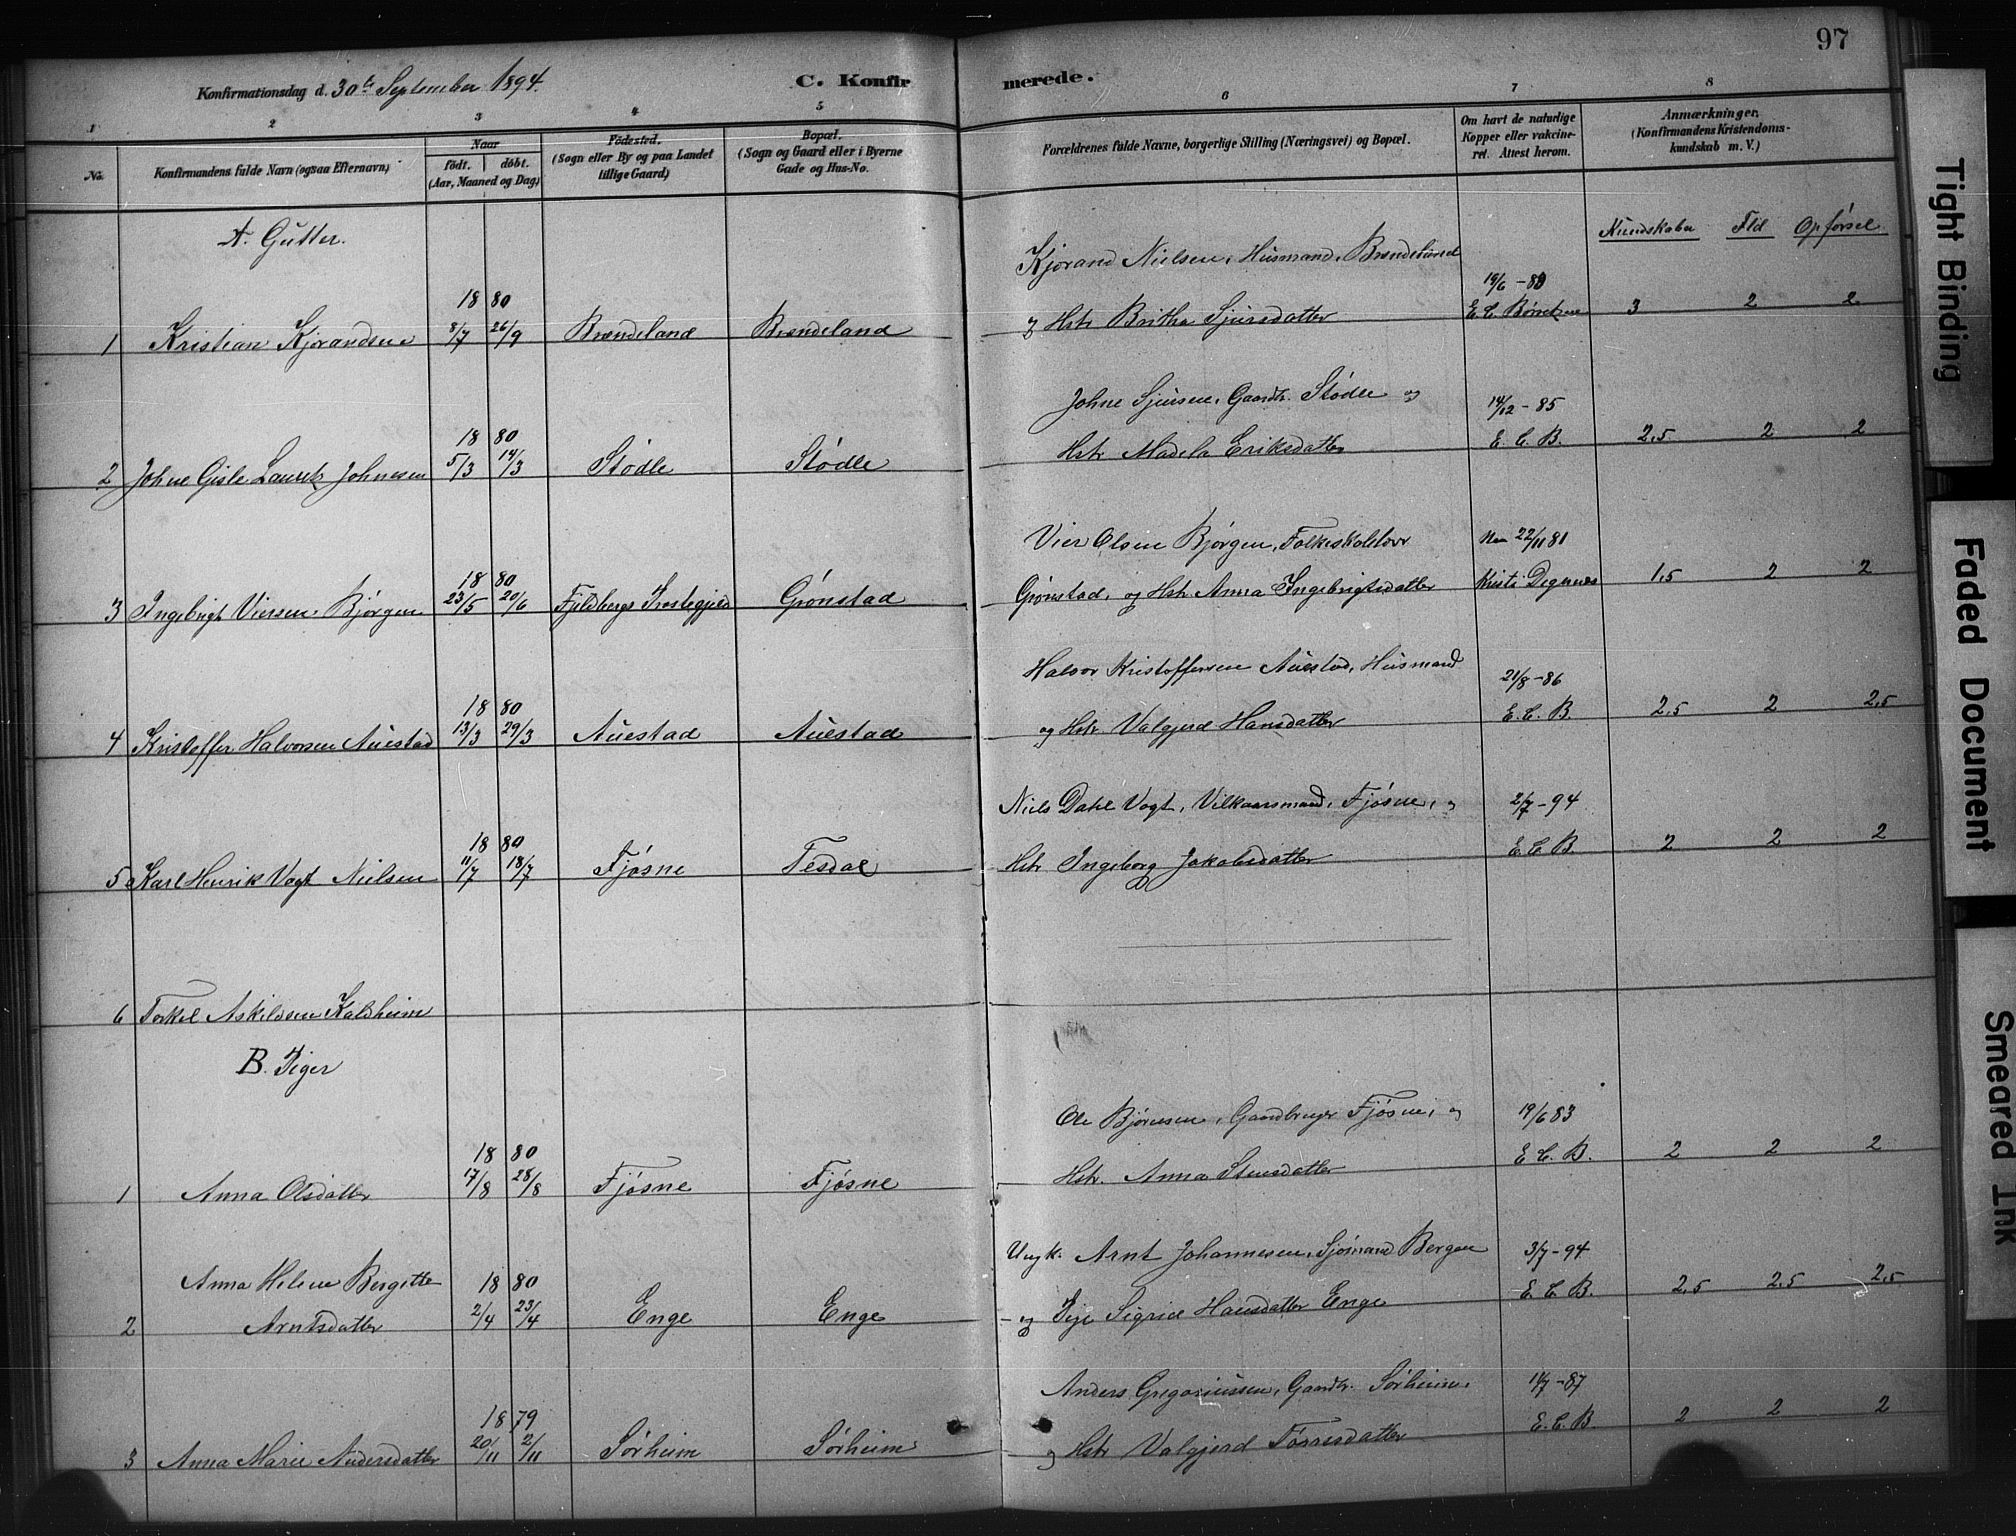 97
Konfirmationsdag d. 30te September 1894.
C. Konfirmerede.
1 2 3 4 5 6 7 8
No.
Konfirmandens fulde Navn (ogsaa Efternavn)
Naar
födt. döbt.
(Aar, Maaned og Dag)
Födested.
(Sogn eller By og paa Landet
tillige Gaard)
Bopæl.
(Sogn og Gaard eller i Byerne
Gade og Hus-No.
Forældrenes fulde Navne, borgerlige Stilling (Næringsvei) og Bopæl.
Om havt de naturlige
Kopper eller vakcine-
ret. Attest herom.
Anmærkninger.
(Konfirmandens Kristendoms-
kundskab m. V.)
A. Gutter.
Kundskaber Flid Opførsel
Kjørand Nielsen, Husmand, Brændeland 19/6 - 80
18 80
1 Kristian Kjørandsen 8/7 26/9 Brændeland Brændeland og Hstr Britha Sjursdatter E. C. Børretzen 3 2 2
Johne Sjursen, Gaardbr. Stødle og 14/12 - 85
18 80
2 Johne Gisle Lauritz Johnesen 5/3 14/3 Stødle Stødle Hstr Madela Eriksdatter E. C. B. 2,5 2 2
Vier Olsen Bjørgen, Folkeskolelærer 22/11 81
18 80
3 Ingebrigt Viersen Bjørgen 23/5 20/6 Fjeldbergs Prestegjeld Grønstad Grønstad, og Hstr. Anna Ingebrigtsdatter Kristi Degernes 1,5 2 2
Halvor Kristoffersen Auestad, Husmand 21/8 - 86
18 80
4 Kristoffer Halvorsen Auestad 13/3 29/3 Auestad Auestad og Hstr. Valgjerd Hansdatter E. C. B. 2,5 2 2,5
Niels Dahl Vogt, Vilkaarsmand, Fjøsne, og 2/7 - 94
18 80
5 Karl Henrik Vogt Nielsen 11/7 18/7 Fjøsne Tesdal Hstr Ingeborg Jakobsdatter E. C. B. 2 2 2
6 Torkel Askildsen Kaldheim
B. Piger
Ole Bjørnsen, Gaardbruger Fjøsne, og 19/6 83
18 80
1 Anna Olsdatter 17/8 28/8 Fjøsne Fjøsne Hstr. Anna Stensdatter E. C. B. 2 2 2
Ungk. Arnt Johannesen, Sjømand Bergen 3/7 - 94
Anna Helene Bergitte 18 80
2 Arntsdatter 2/4 23/4 Enge Enge og Pige Sigrid Hansdatter Enge E. C. B. 2,5 2,5 2,5
Anders Gregoriussen, Gaardbr. Sørheim, 11/7 - 87
18 79
3 Anna Marie Andersdatter 20/11 2/11 Sørheim Sørheim og Hstr Valgjerd Tørresdatter E. C. B. 2 2 2
Tight Binding
Faded Document
Smeared Ink